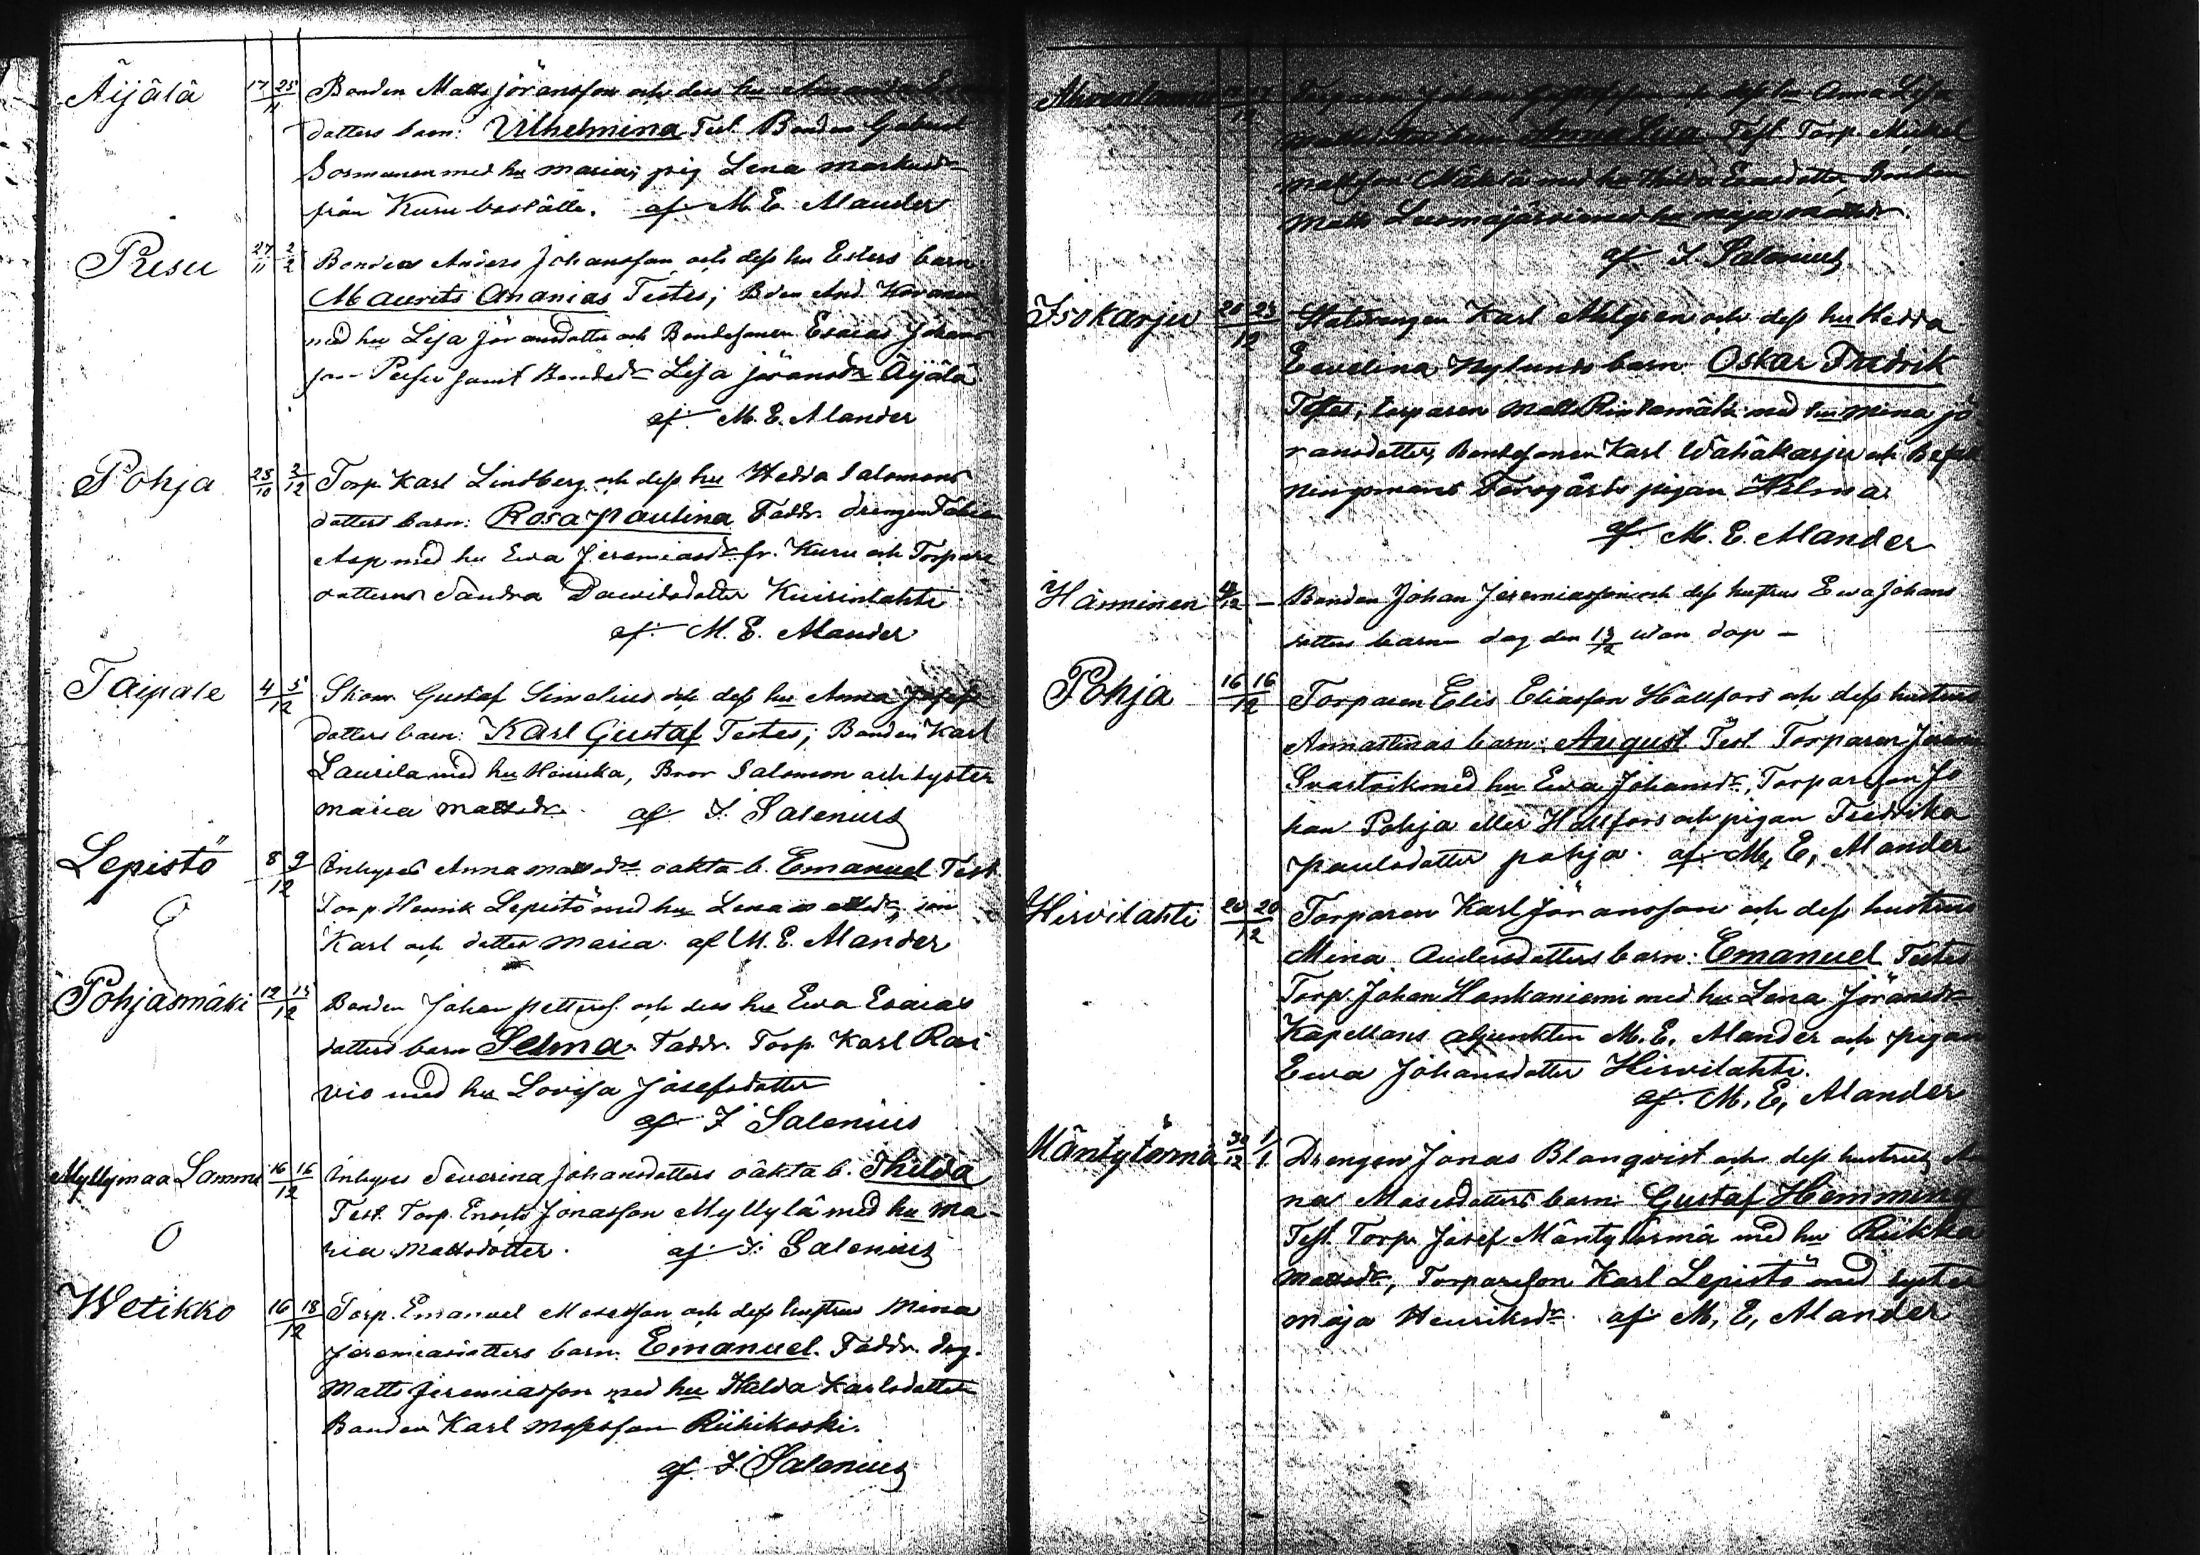 Äijälä 17 25/11 Bonden Matts Jöransson och dess hu
dotters barn: Vilhelmina Test. Bonden Gabriel
Sormunen med hu Maria, pig Lena Marksdr
från Kuru boställe. af M. E. Alander
Pusu 27/11 2/2 Bonden Anders Johansson och dess hu Esters barn
Maurits Ananias Testes; Bden And.
med hu Lisa Jöransdotter och Bondesonen Esaias Johans
son Pusu samt Bondedr Lisa Jöransdr Äijälä
af M. E. Alander
Pohja 28/10 3/12 Torp. Karl Lindberg och dess hu Hedda Salomons
dotters barn: Rosa Paulina Faddr. drengen
Asp med hu Ewa Jeremiasdr fr. Kuru och Torpare
dottern Sandra Dawidsdotter Kuivinlahti
af M. E. Alander
Taipale 4 5/12 Skom. Gustaf Simelius och dess hu Anna Josefs
dotters barn: Karl Gustaf Testes; Bonden Karl
Laurila med hu Henrika, Bror Salomon och syster
Maria Mattsdr. af J. Salenius
Lepistö 8 9/12 Inhyses Anna Mattsdr oäkta b. Emanuel Test
Torp Henrik Lepistö med hu Lena Mattsdr, son
Karl och dotter Maria. af M. E. Alander
Pohjasmäki 12 13/12 Bonden Johan Petters. och dess hu Ewa Esaias
dotters barn Selma. Faddr. Torp. Karl Rai
vio med hu Lovisa Josefsdotter
af J Salenius
Myllymaa Sammi 16 16/12 Inhyses Severina Johansdotters oäkta b. Thilda
Test. Torp. Enock Jonasson Myllylä med hu Ma-
ria Mattsdotter. af J. Salenius
Wetikko 16 18/12 Torp. Emanuel Mosesson och dess hustrus Mina
Jeremiasdotters barn: Emanuel. Faddr. drg.
Matts Jeremiasson med hu Helda Karlsdotter
Bonden Karl Mosesson Riihikoski.
af J. Salenius
Torparen Johan Gustafsson och dess hu Anna Lisa
barn Anna Lisa Test. Torp Mickel
Mattsson Mäkelä med hu Hilda Esasdotter, Bonden
Matts Luomajärvi med hu Maja Mattsdr.
af J. Salenius
Isokarju 20 25/12 Karl Ahlgren och dess hu Hedda
Evelina Nylunds barn Oskar Fredrik
Testes, torparen Matts Rintamäki med hu Mina Jö
ransdotter, Bondesonen Karl Wähäkarju och
ningsmans Forsgårds pigan Helma.
af M. E. Alander
Hänninen /12 – Bonden Johan Jeremiasson och dess hustrus Ewa Johans
dotters barn dog den 13/12 utan dop –
Pohja 16 16/12 Torparen Elis Eliasson Hallfors och dess hustrus
Annastinas barn: August. Test. Torparen
Svartvik med hu Ewa Johansdr, Torpareson Jo
han Pohja eller Hallfors och pigan Fredrika
Paulsdotter Pohja. af M, E, Alander
Hirvilahti 20 20/12 Torparen Karl Jöransson och dess hustrus
Mina Andersdotters barn: Emanuel Testes
Torp. Johan Honkaniemi med hu Lena Jöransdr
Kapellans adjunkten M. E. Alander och pigan
Ewa Johansdotter Hirvilahti.
af M. E, Alander
Mäntytörmä 30/12 1/1 Drengen Jonas Blanqvist och dess hustrus An
na Mosesdotters barn: Gustaf Hemming
Test. Torp. Josef Mäntytörmä med hu Riikka
Mattsdr, Torpareson Karl Lepistö med syster
Maja Henriksdr. af M, E, Alander